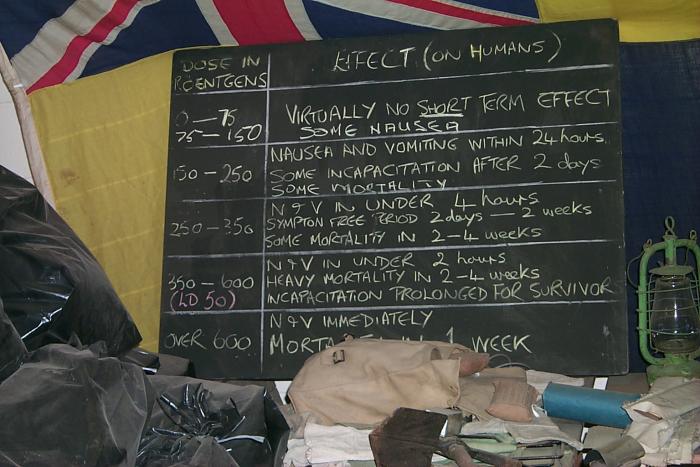 DOSE IN EFFECT (ON HUMANS)
RÖENTGENS
0 — 75 VIRTUALLY NO SHORT TERM EFFECT
75 — 150 SOME NAUSEA
NAUSEA AND VOMITING WITHIN 24 hours
150 — 250 SOME INCAPACITATION AFTER 2 days
SOME MORTALITY
N & V IN UNDER 4 hours
250 — 350 SYMPTON FREE PERIOD 2 days — 2 weeks
SOME MORTALITY IN 2-4 weeks
N & V IN UNDER 2 hours
350 — 600 HEAVY MORTALITY IN 2-4 weeks
(LD 50) INCAPACITATION PROLONGED FOR SURVIVOR
N & V IMMEDIATELY
OVER 600 1 WEEK